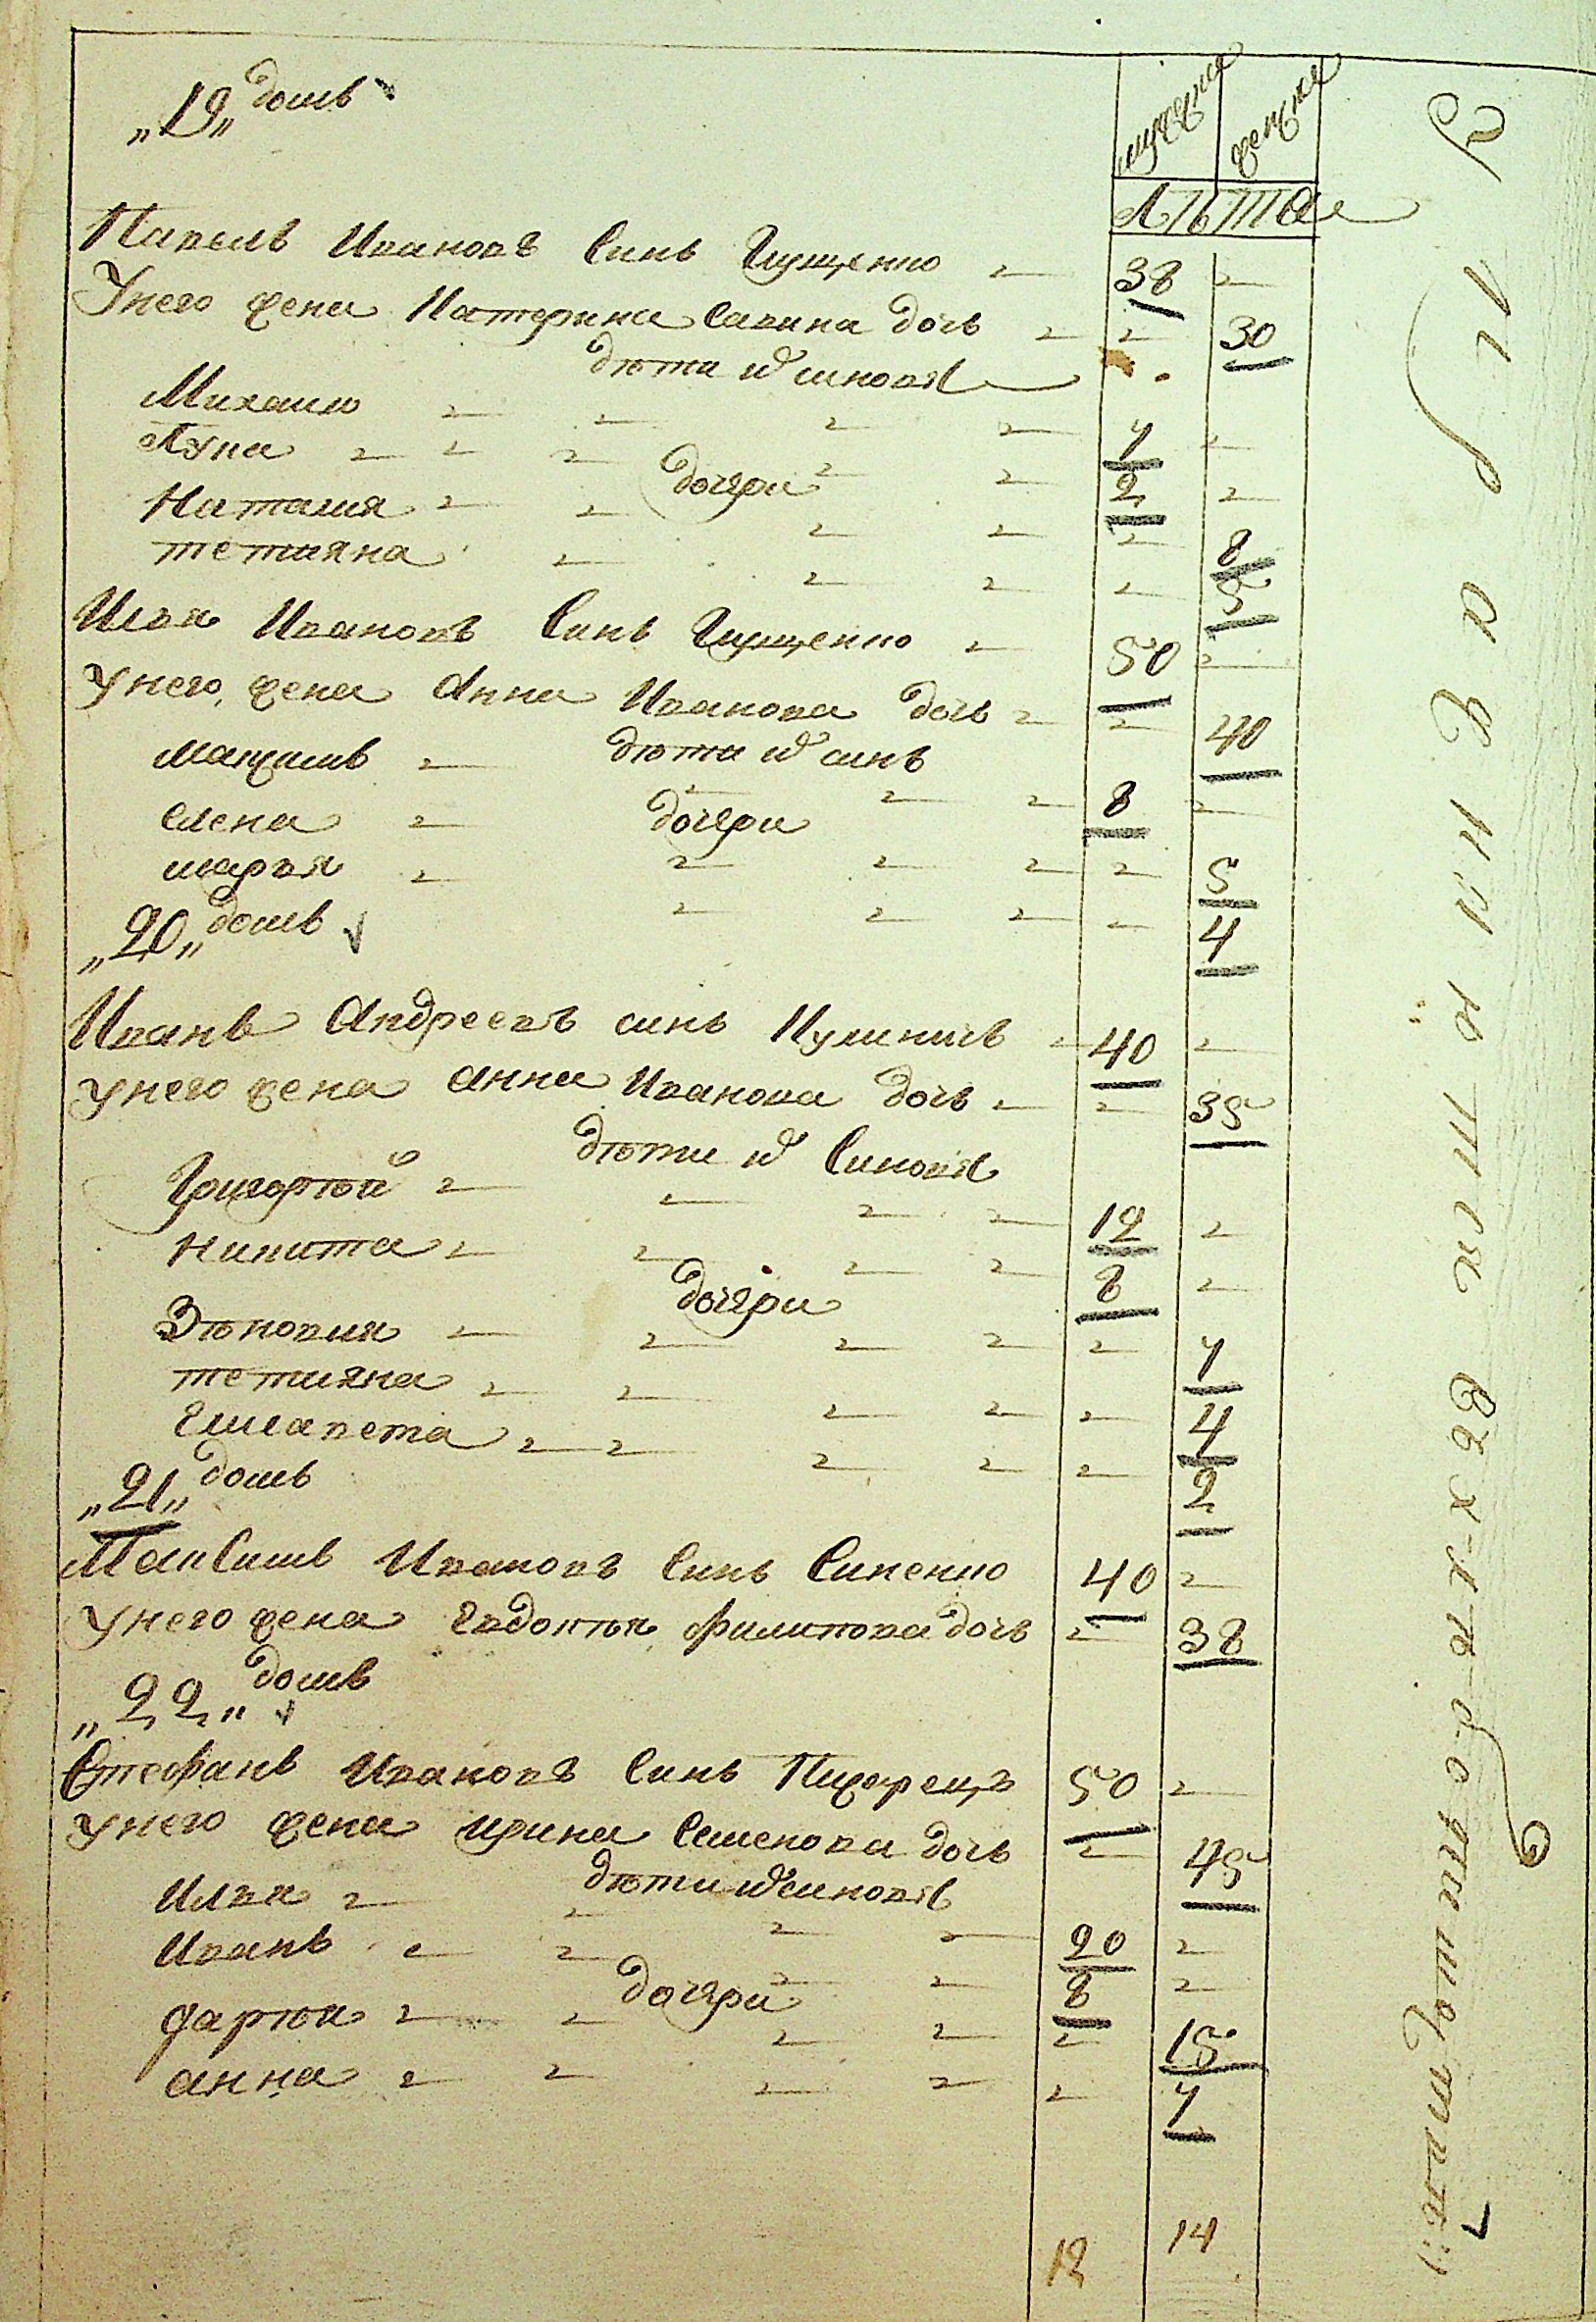 „19„ домъ
мужска женска
лѣта
Павелъ Ивановъ Синъ Грищенко 38
Унего жена Катерина Савина дочь 30
дѣти и҇ синовя
Михаило 7
Лука 2
дочери
Наталия 8
тетияна 5
Илья Ивановъ Синъ Грищенко 50
Унего жена Анна Иванова дочь 40
дѣти и҇ синъ
Максимъ 8
дочери
Елена 5
марья 4
„20„ домъ
Иванъ Андреевъ синъ Кулиничъ 40
Унего жена Анна Иванова дочь 35
дѣти и҇ Синовя
Григорѣй 12
Никита 8
дочери
Зѣновия 7
тетияна 4
Елисавета 2
„21„ домъ
Максимъ Ивановъ Синъ Сипенко 40
Унего жена Евдокия филипова дочь 38
„22„ домъ
Стефанъ Ивановъ Синъ Пиварецъ 50
Унего жена ирина Семенова дочь 45
дѣти и҇ синовя
Илья 20
Иванъ 8
дочери
дарѣя 15
анна 7
12 14